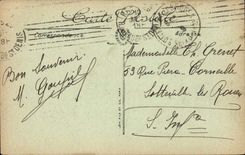 Carte Postale
Correspondance
Adresse
Bon Souvenir
M. Goupil
Mademoiselle Ch Crenet
53 Rue Pierre Corneille
Sotteville les Rouen
S. Infre